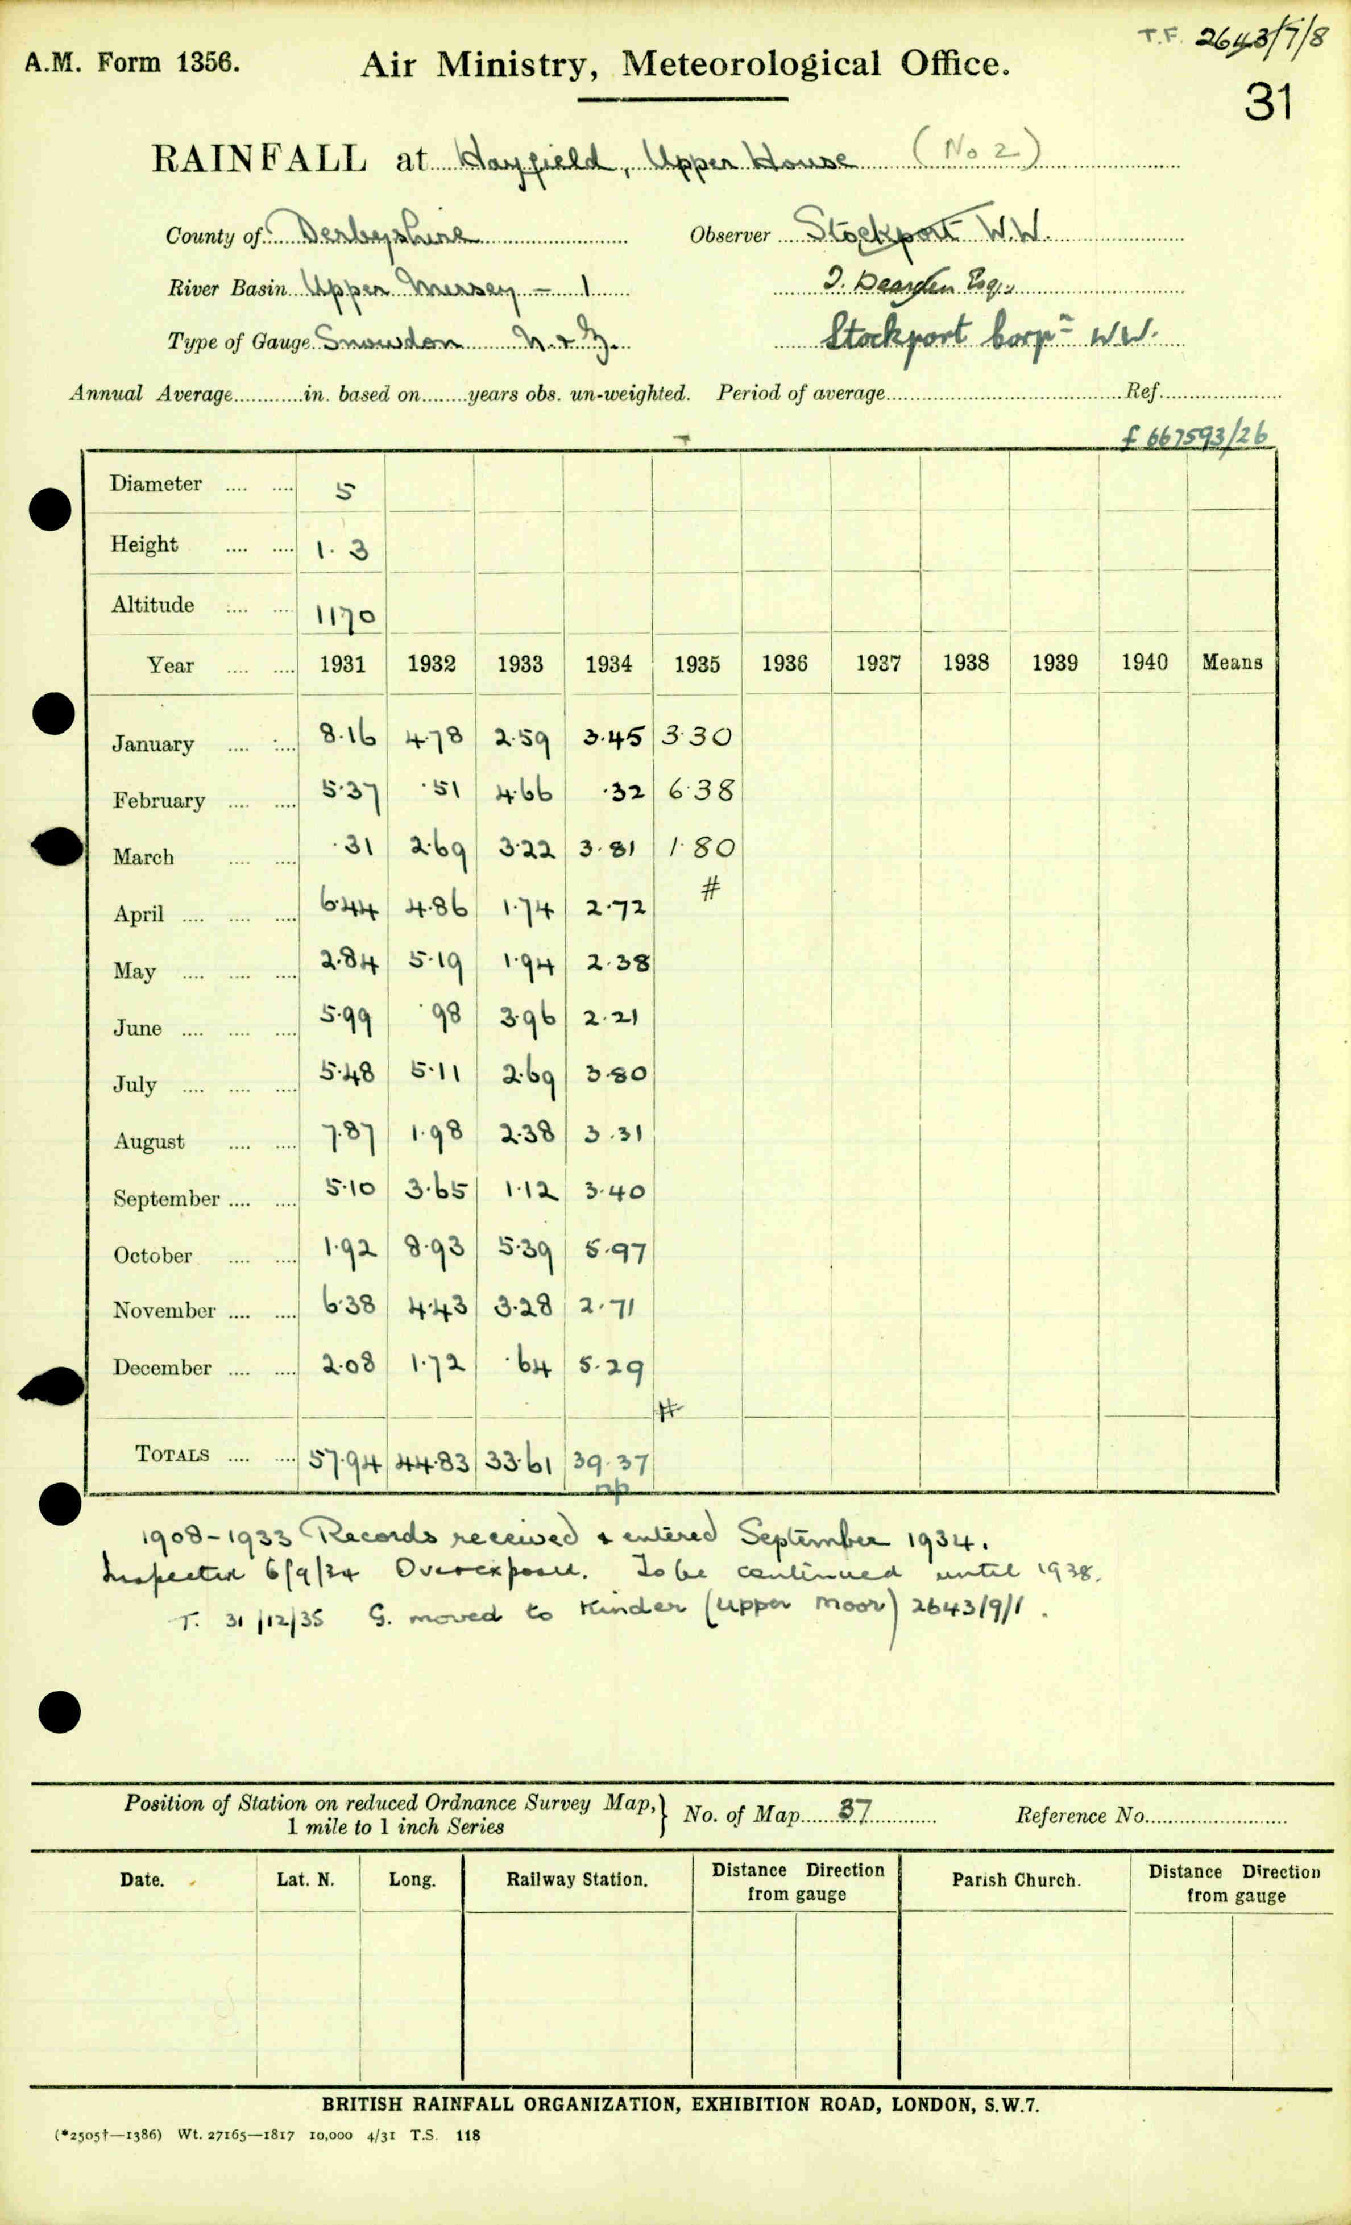 T.F. 2643/7/8
A.M. Form 1356. Air Ministry, Meteorological Office.
31
RAINFALL at Hayfield, Upper House (No 2)
County of Derbyshire Observer Stockport W.W.
River Basin Upper Mersey - 1 J. Dearden Esq.,
Type of Gauge Snowdon Stockport Corpn WW.
Annual Average............in. based on........years obs. un-weighted. Period of average.............Ref.............
f 667593/26
Diameter .... .... 5
Height .... .... 1.3
Altitude .... .... 1170
Year .... .... 1931 1932 1933 1934 1935 1936 1937 1938 1939 1940 Means
January .... .... 8.16 4.78 2.59 3.45 3.30
February .... .... 5.37 .51 4.66 .32 6.38
March .... .... .31 2.69 3.22 3.81 1.80
April .... .... .... 6.44 4.86 1.74 2.72 #
May .... .... .... 2.84 5.19 1.94 2.38
June .... .... .... 5.99 .98 3.96 2.21
July .... .... .... 5.48 5.11 2.69 3.80
August .... .... 7.87 1.98 2.38 3.31
September .... .... 5.10 3.65 1.12 3.40
October .... .... 1.92 8.93 5.39 5.97
November .... .... 6.38 4.43 3.28 2.71
December .... .... 2.08 1.72 .64 5.29
#
TOTALS .... .... 57.94 44.83 33.61 39.37
1908-1933 Records received & entered September 1934.
Inspected 6/9/34 Overexposed. To be continued until 1938.
T. 31/12/35 G. moved to Kinder (Upper Moor) 2643/9/1.
Position of Station on reduced Ordnance Survey Map,} No. of Map 37 Reference No.............
1 mile to 1 inch Series
Date. Lat. N. Long. Railway Station. Distance Direction from gauge Parish Church. Distance Direction from gauge
BRITISH RAINFALL ORGANIZATION, EXHIBITION ROAD, LONDON, S.W.7.
(*2505†—1386) Wt. 27165—1817 10,000 4/31 T.S. 118